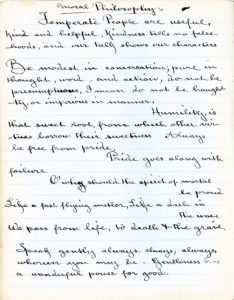 Moral Philosophy.
Temperate People are useful,
Kind and helpful, Kindness tells no false-
hoods, and our talk shows our characters
Be modest in conversation, pure in
thought, word, and action, do not be
presumptions, I mean do not be haught-
ty, or imperious in manner.
Humility is
that sweet root, from which other vir-
tues borrow their sweetness Always
be free from pride.
Pride goes along with
failure
O' why should the spirit of mortal
be proud
Like a fast flying meteor, Like a dash in
the wave
We pass from life, to death & the grave.
Speak gently always, always, always
wherever you may be. Gentleness is
a wonderful power for good.